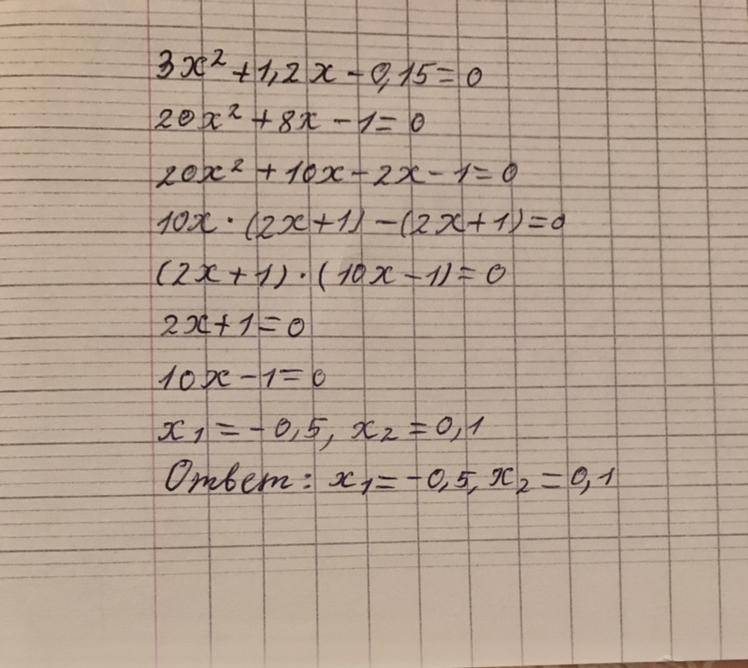 3x² + 1,2x - 0,15 = 0
20x² + 8x - 1 = 0
20x² + 10x - 2x - 1 = 0
10x · (2x + 1) - (2x + 1) = 0
(2x + 1) · (10x - 1) = 0
2x + 1 = 0
10x - 1 = 0
x₁ = - 0,5, x₂ = 0,1
Ответ: x₁ = -0,5, x₂ = 0,1